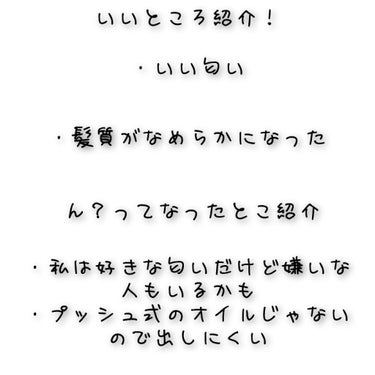 いいところ紹介！
・いい匂い
・髪質がなめらかになった
ん？ってなったとこ紹介
・私は好きな匂いだけど嫌いな
人もいるかも
・プッシュ式のオイルじゃない
ので出しにくい